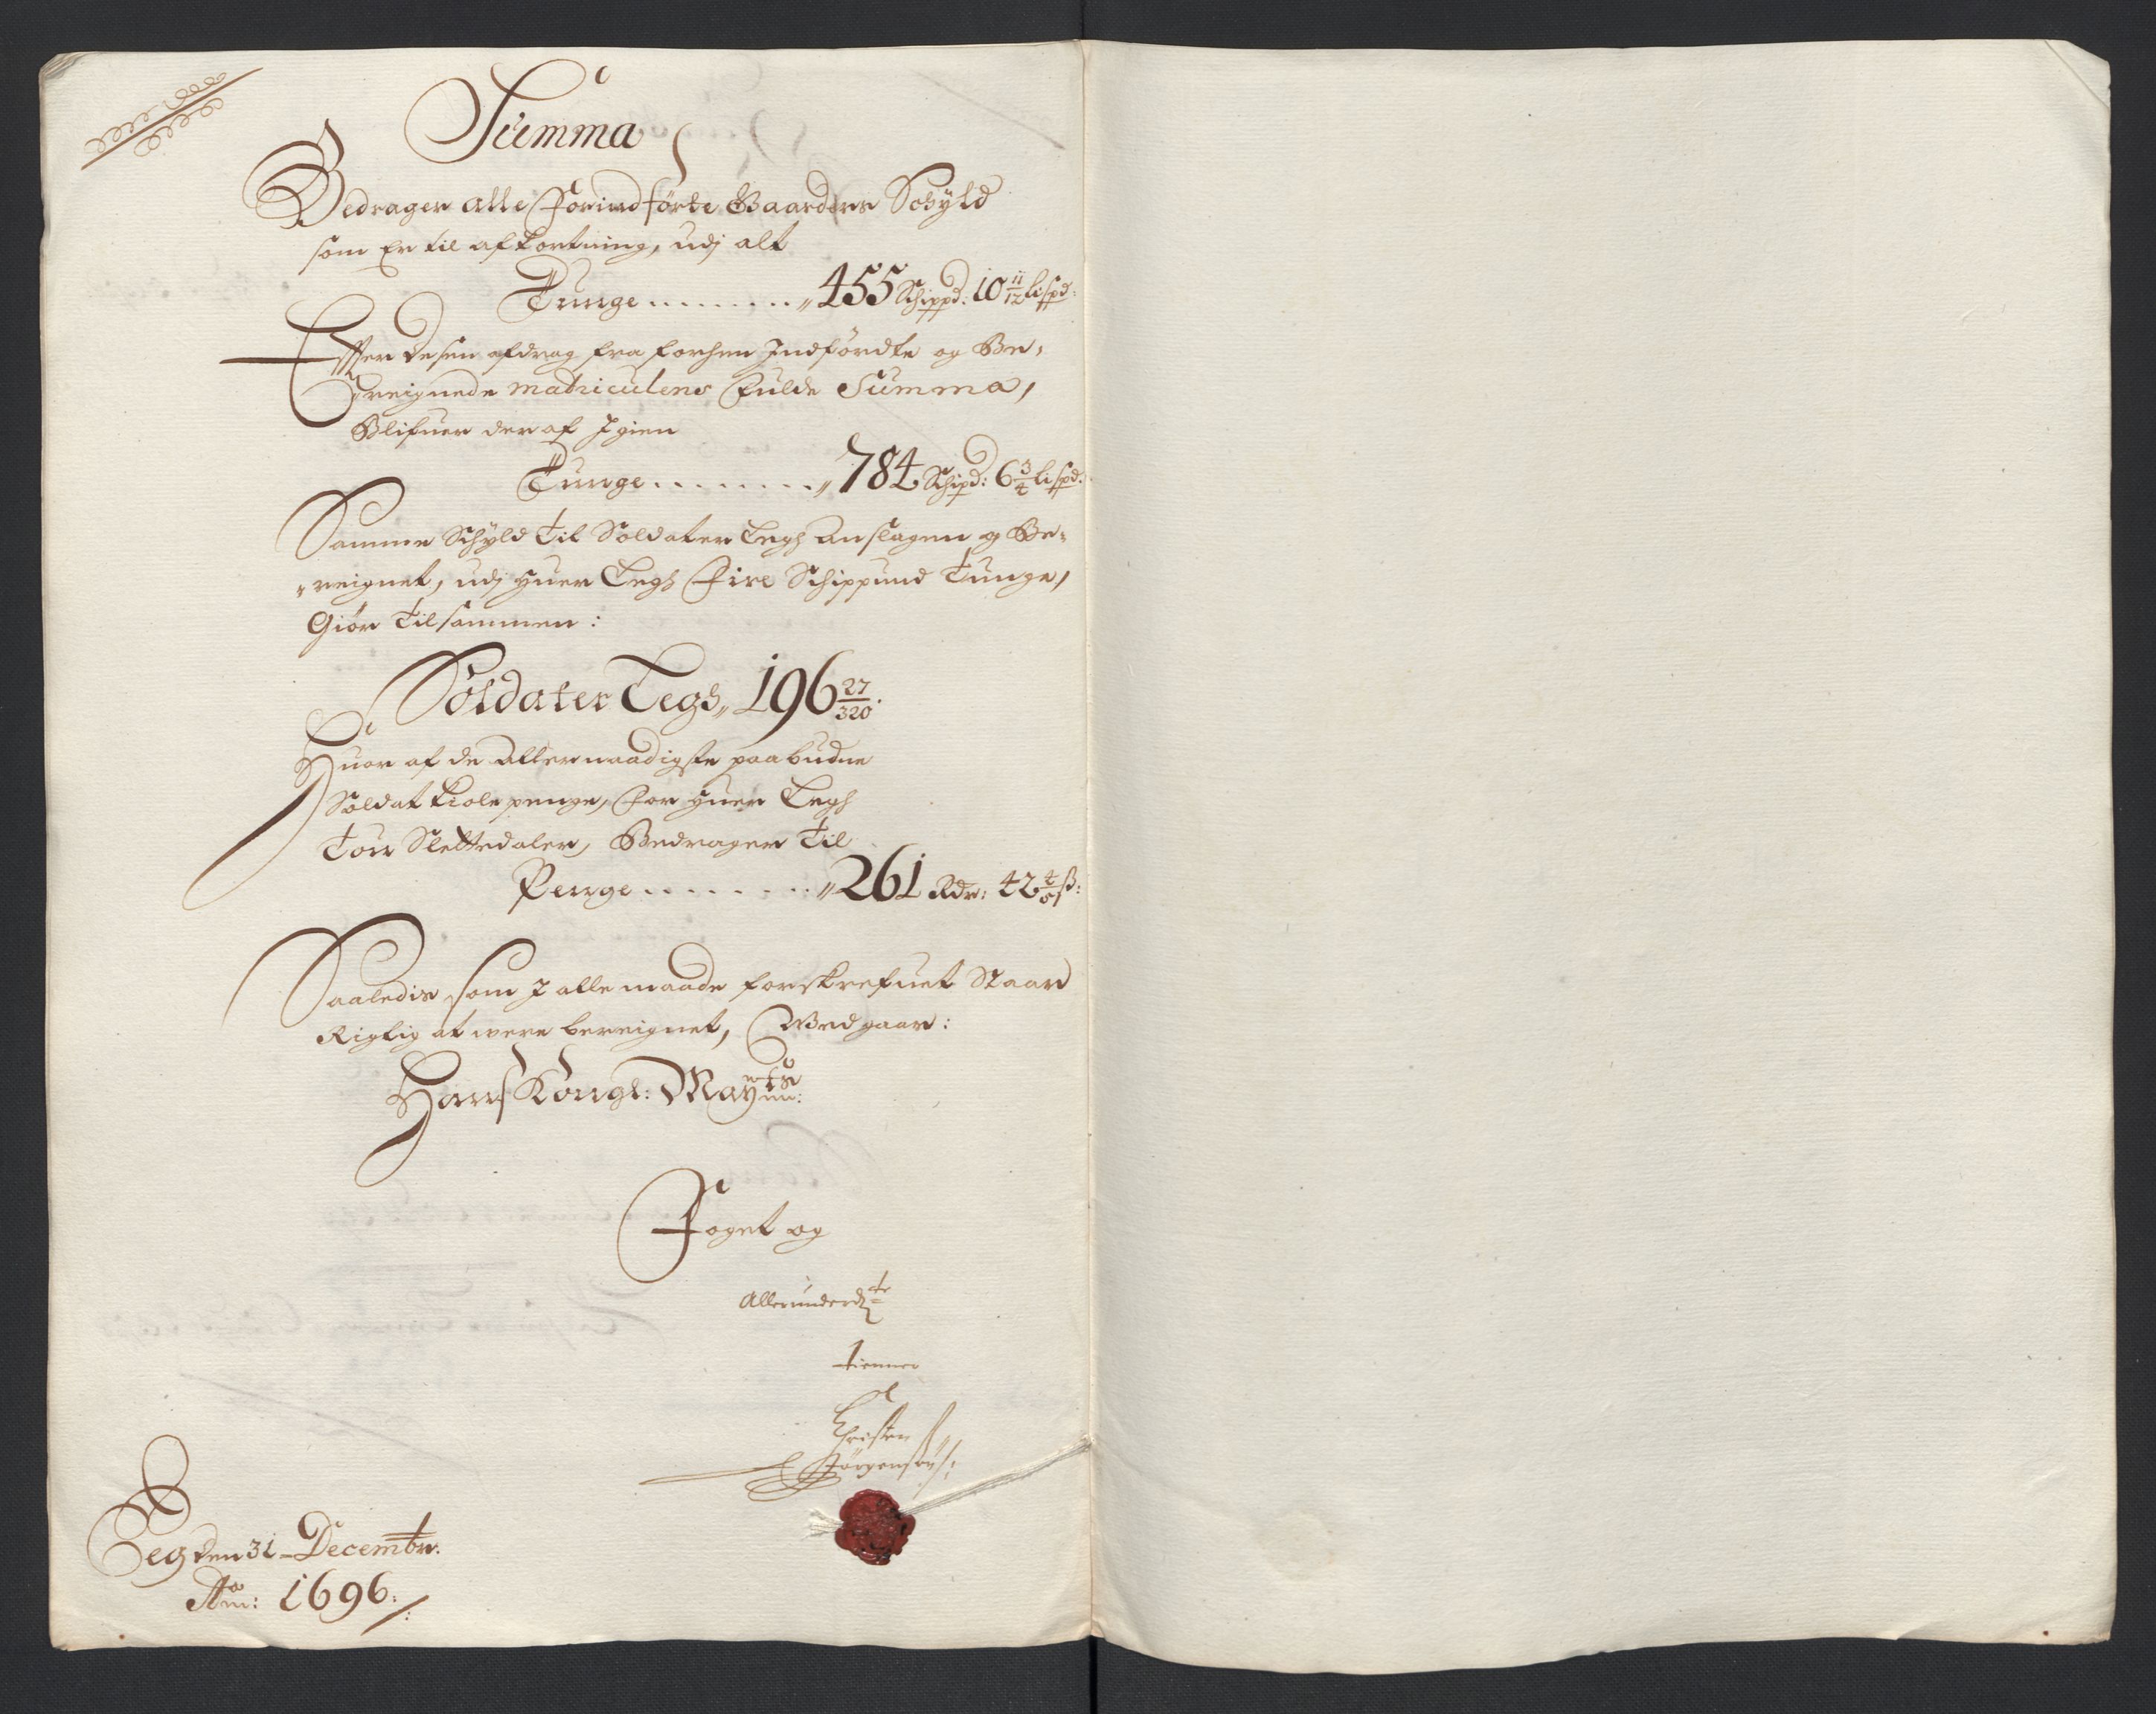 Summa
Bedrager alle Forindførte Gaarders Schyld
som Er til afkortning, udj alt
Tunge . . . . . . . . „ 455 Schippd: 10 11/12 lispd:
Effter desen afdrag fra forhen Indførdte og Be„
„reignede matriculens Fulde Summa,
Blifuer der af Igien
Tunge . . . . . . . . „ 784 Schipd: 6 3/4 lispd:
Samme Schyld til Soldater Legh anslagen og Be„
„reignet, udj huer Legh Fire Schippund Tunge,
Giør Tilsammen:
Soldater Legh „ 196 27/320.
Huor af de Allernaadigste paabudne
Soldat kiole penge, for huer Legh
Tou Slettedaler, Bedrager Til
Penge . . . . . . . . „ 261 Rdr: 42 4/5 ß:
Saaledis som I alle maade forskrefuet Staar
Rigtig at were bereignet, Wedgaar:
Hans Kongl: Maytts
Foget og
Allerunderdte
tienner
Christen
Jørgensøn
Eeg den 31 Decembr.
Ao: 1696: